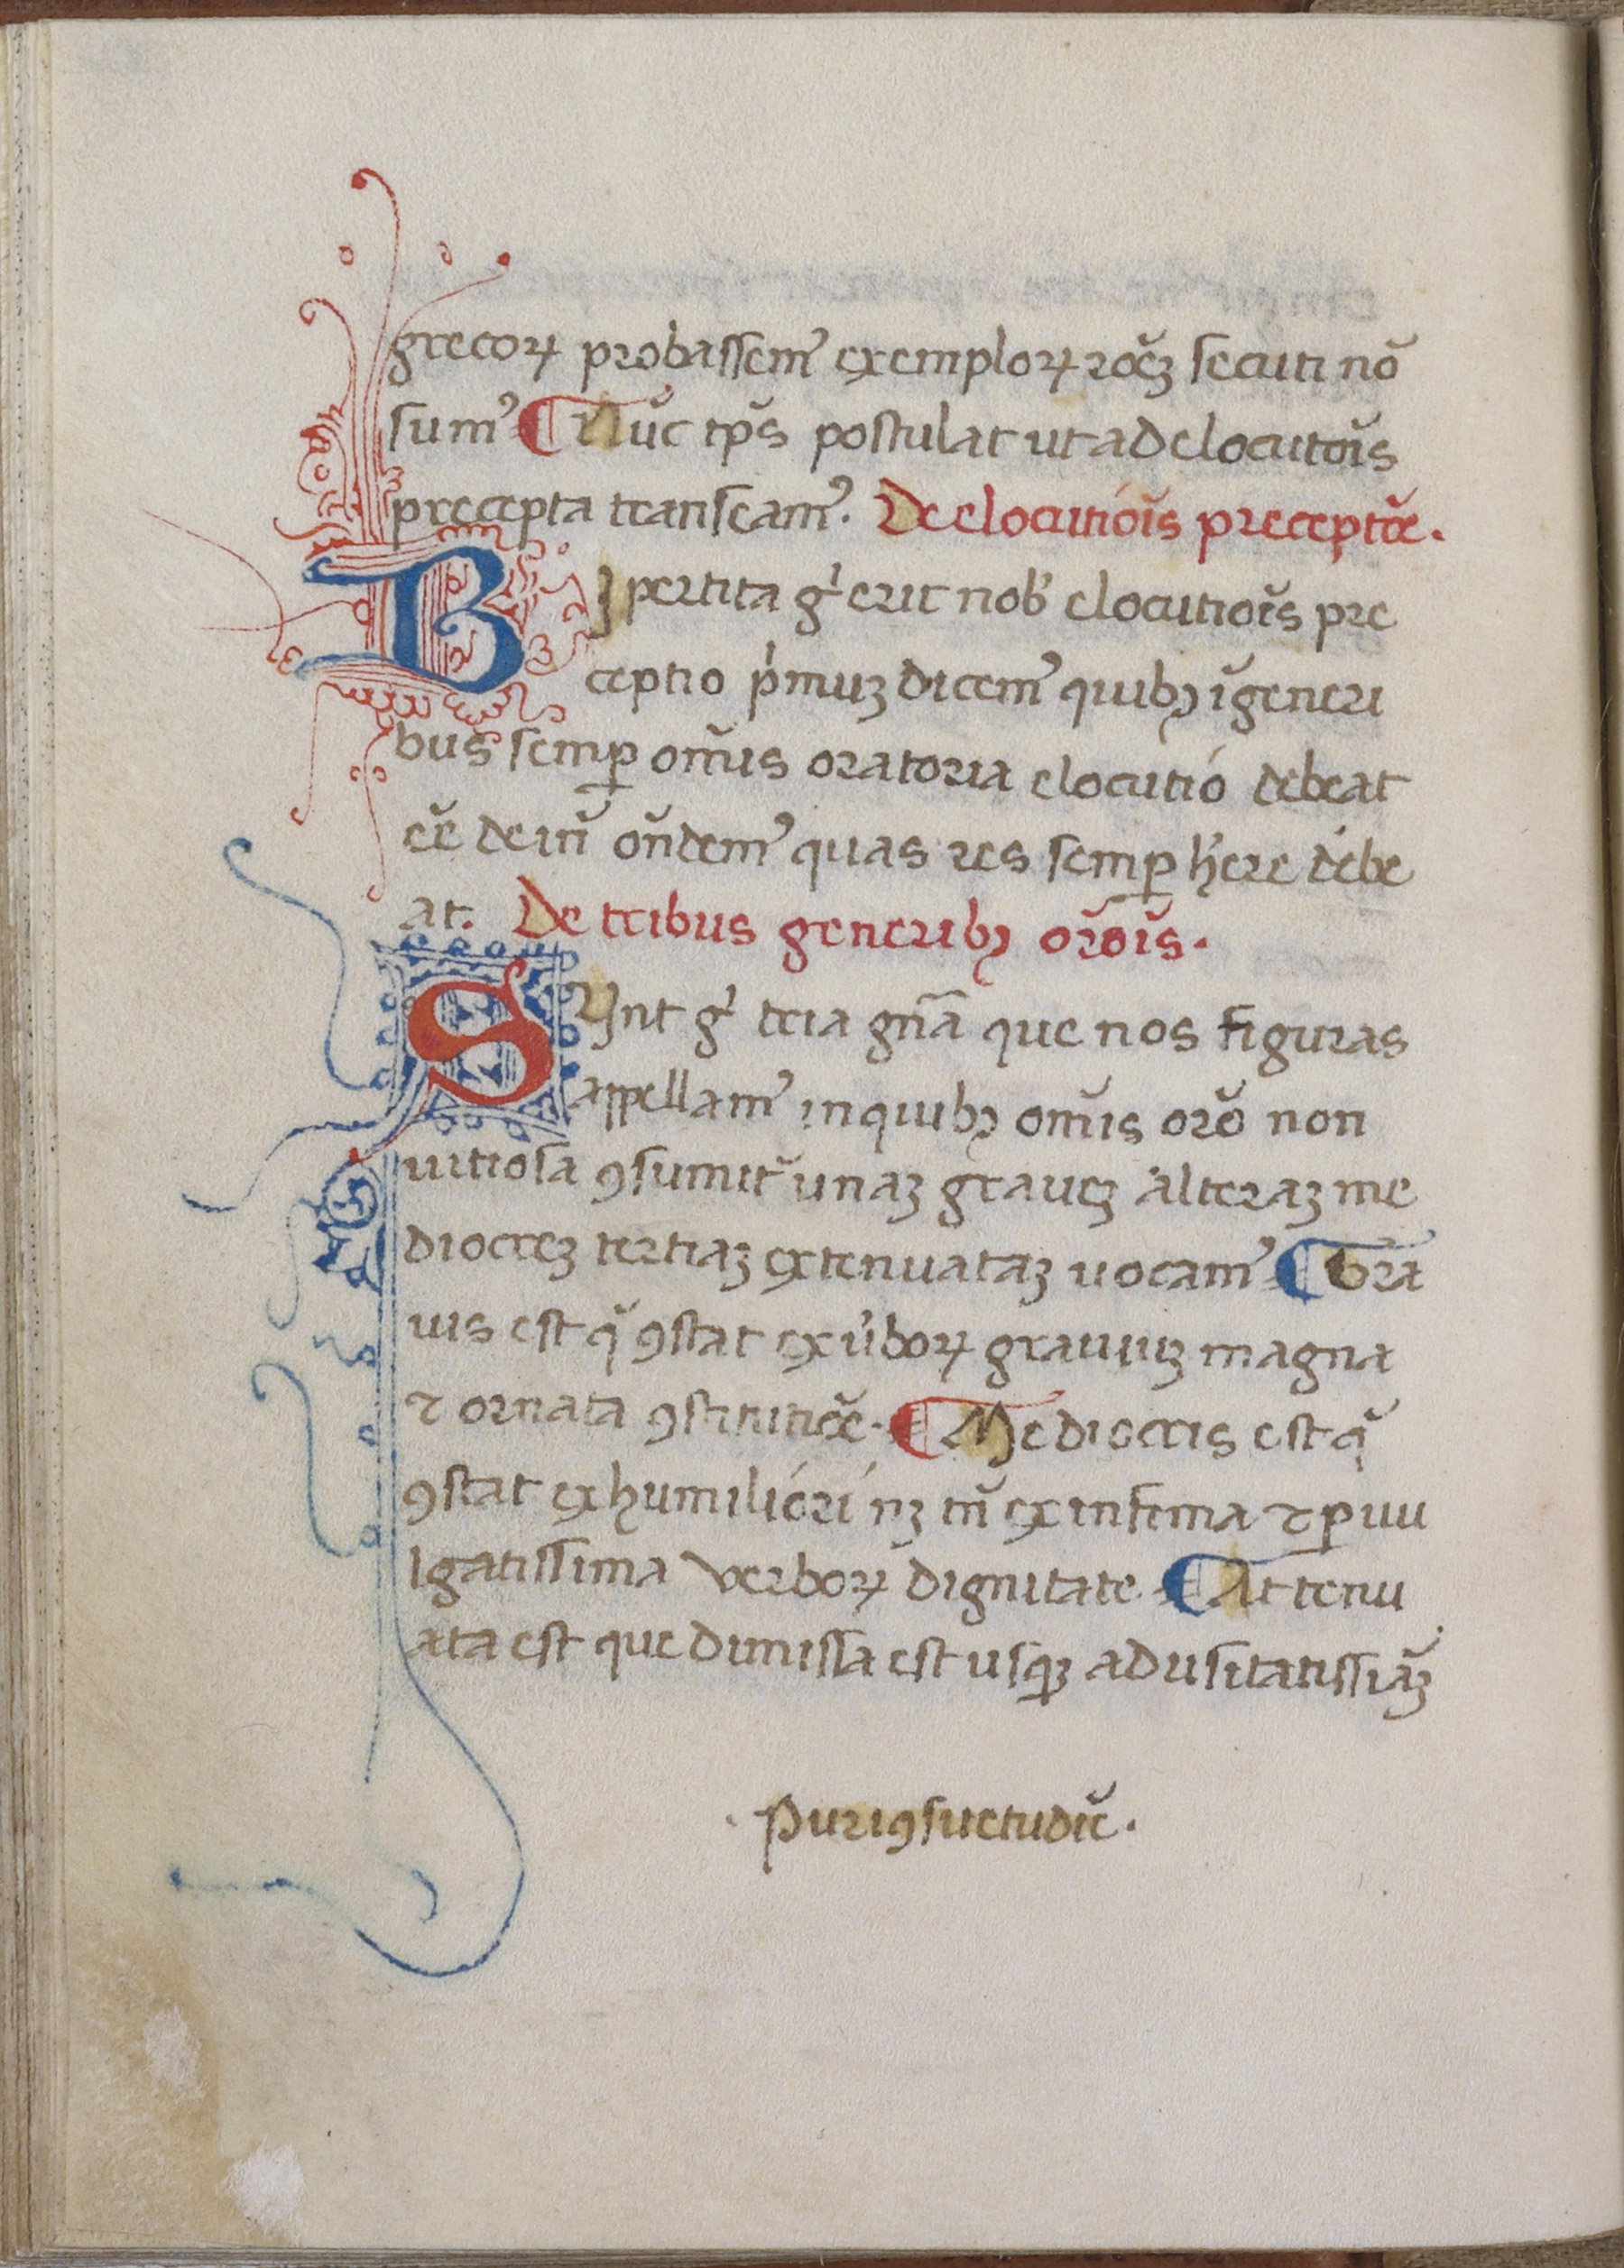 grecoꝝ probassemꝰ exemploꝝ roẽꝫ secuti nõ
sumꝰ Nũc tp̃s postulat ut ad elocutõis
precepta transeamꝰ. De elocutiõis preceptõe.
BJpertita gͥ erit nob̾ elocutiõis pre
ceptio pͥmuꝫ dicemꝰ quibꝫ ĩ generi
bus semꝑ om̃is oratoria elocutio debeat
eẽ dein̄ on̄demꝰ quas res semꝑ h̾ere debe
at. De tribus generibꝫ orõis.
SVnt gͥ tria gn̄a que nos figuras
appellamꝰ in quibꝫ om̃is orõ non
uitiosa ꝯsumit᷑ unaꝫ graueꝫ alteraꝫ me
diocreꝫ tertiaꝫ extenuataꝫ uocamꝰ Gra
uis est q̃ ꝯstat ex u̾boꝝ grauiuꝫ magna
⁊ ornata ꝯstitutiõe. Mediocris est q̃
ꝯstat ex humiliori nꝫ tn̄ ex infima ⁊ ꝑuu
lgatissima verboꝝ dignitate Attenu
ata est que dimissa est usqꝫ ad usitatissiãꝫ
. Puri ꝯsuetudĩe.